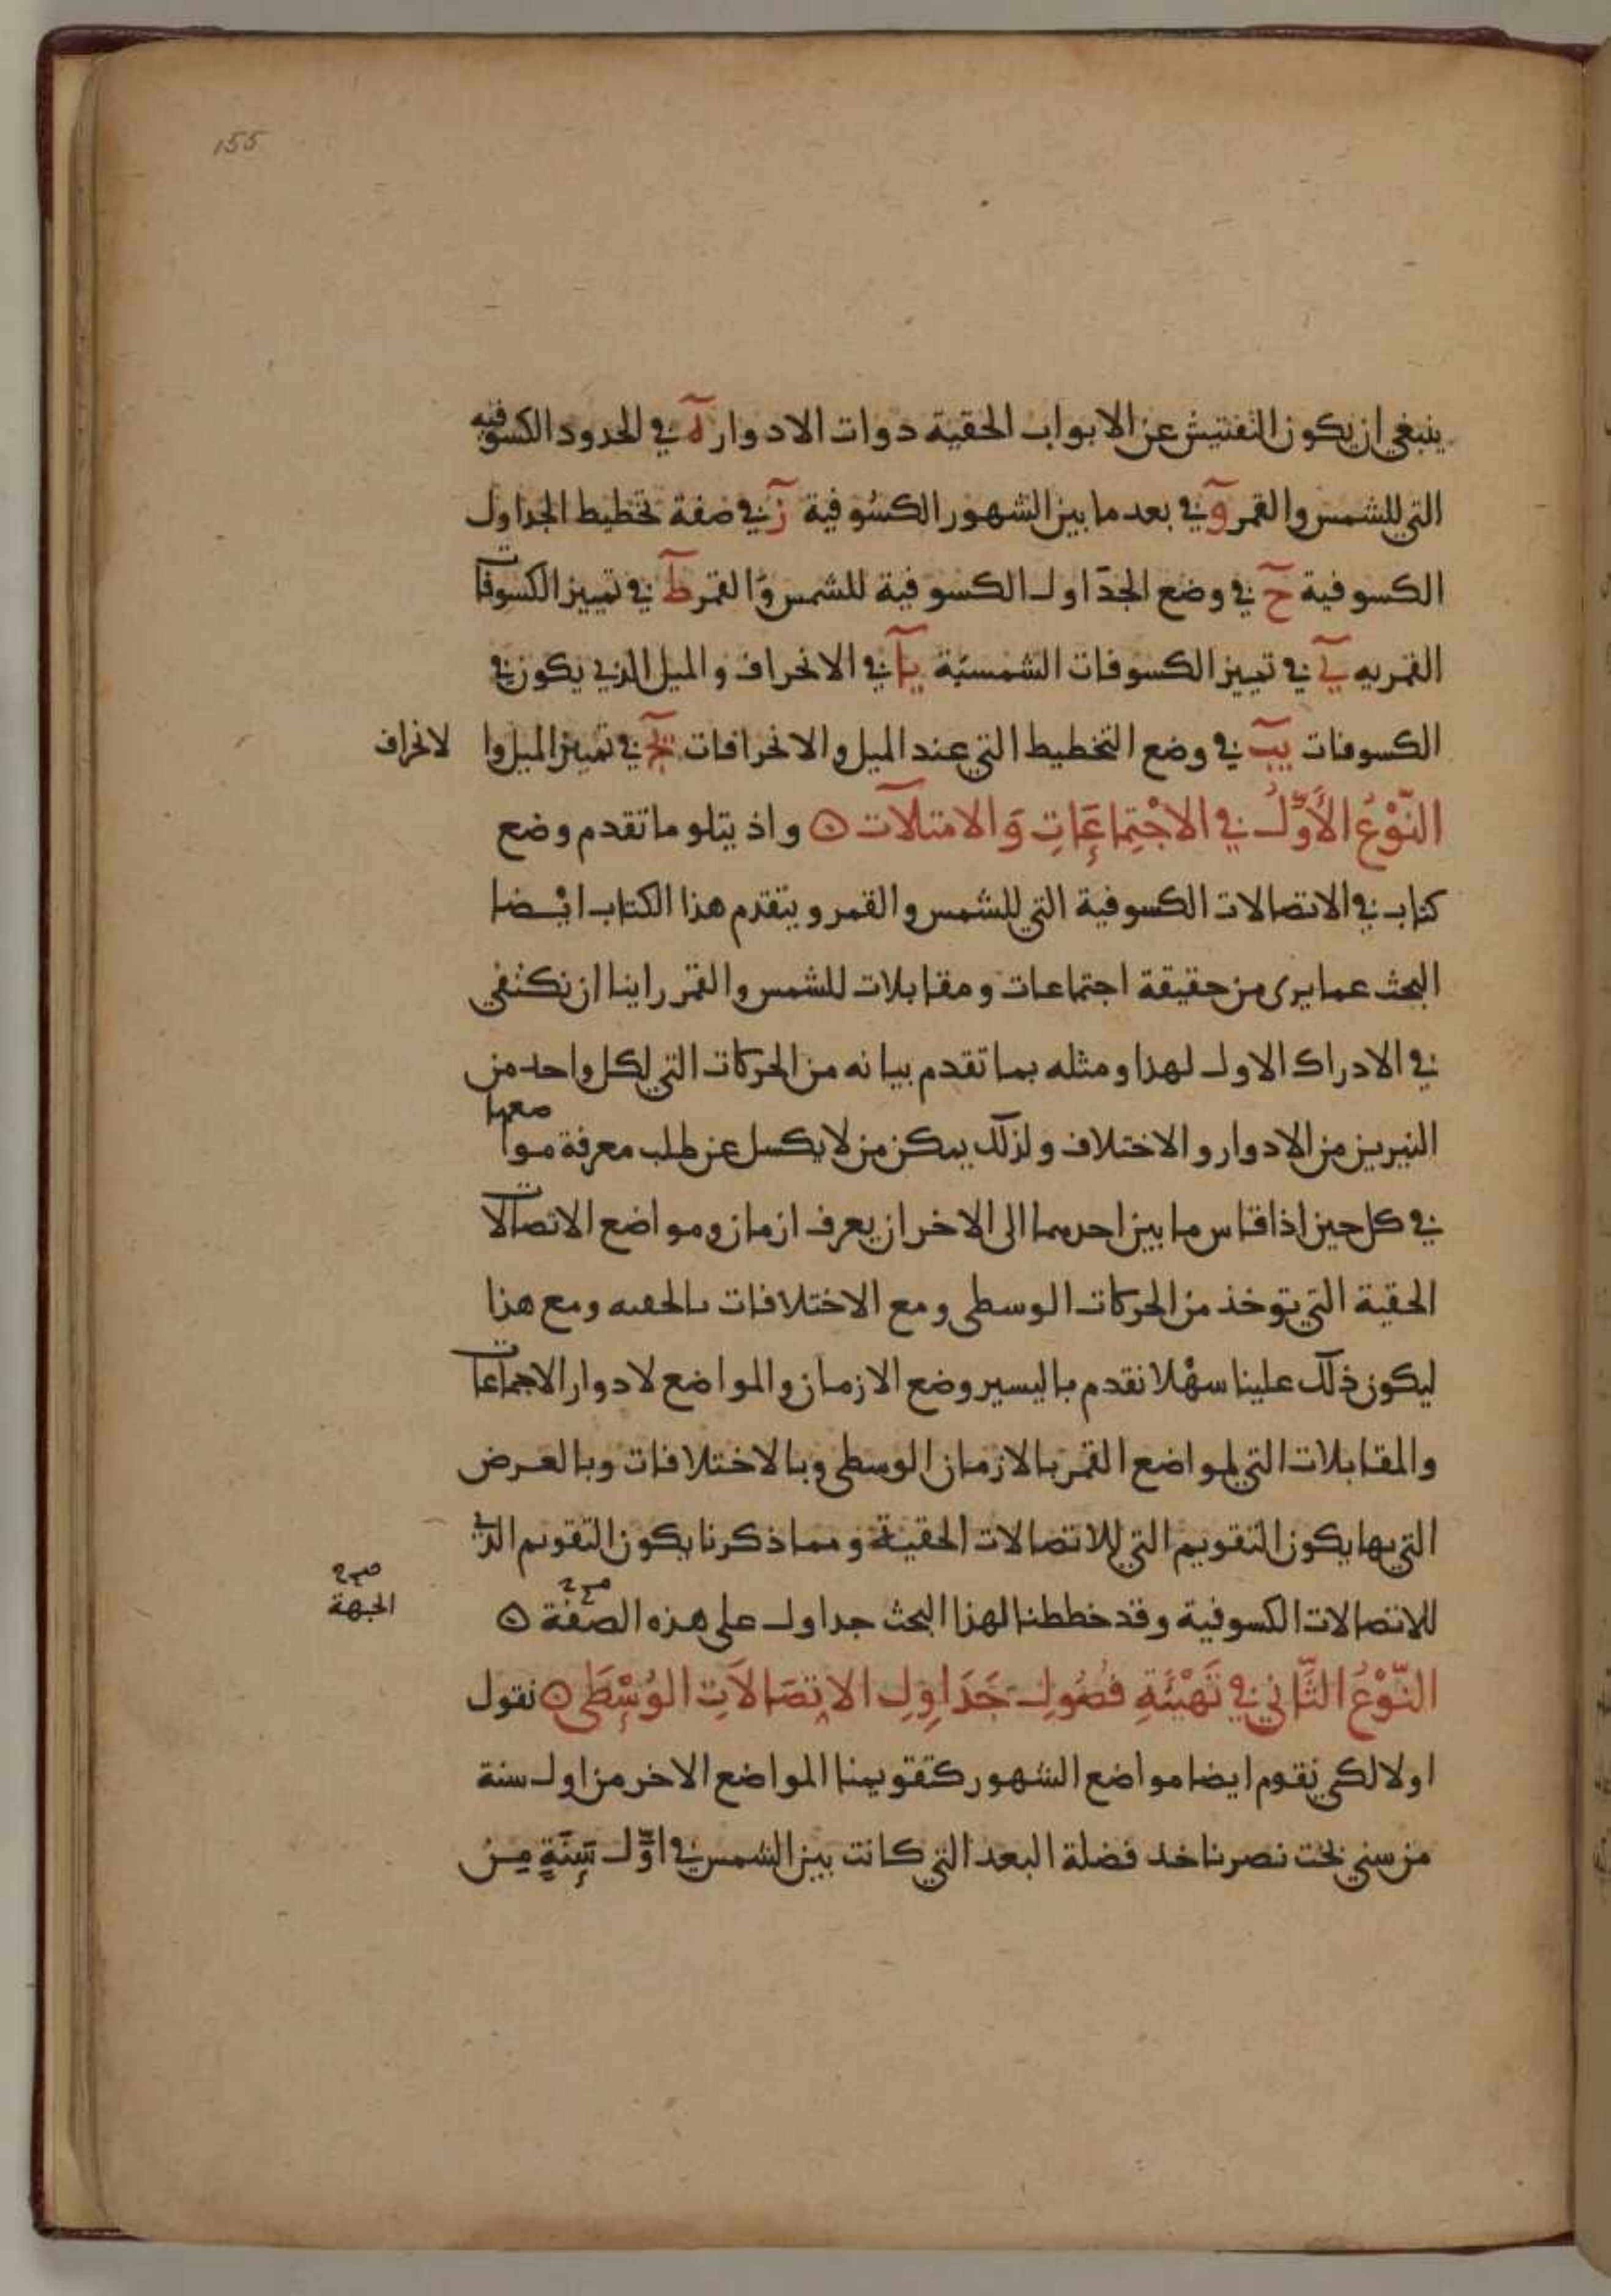 155
ينبغي ان يكون التفتيش عن الابواب الحقية دوات الادوار ه في الحدود الكسوفيه
التي للشمس والقمر و في بعد ما بين الشهور الكسوفية ز في صفة تخطيط الجداول
الكسوفية ح في وضع الجداول الكسوفية للشمس والقمر ط في تمييز الكسوفات
القمريه ي في تمييز الكسوفات الشمسية يا في الانحراف والميل الذي يكون في
الكسوفات يب في وضع التخطيط التي عند الميل والانحرافات يج في تمييز الميل وا لانحراف
النَّوْعُ الأَوَّلُ في الاجْتِمَاعَاتِ وَالامتلآت ۞ واذ يتلو ما تقدم وضع
كتاب في الاتصالات الكسوفية التي للشمس والقمر ويتقدم هذا الكتاب ايْضا
البحث عما يرى من حقيقة اجتماعات ومقابلات للشمس والقمر راينا ان نكتفي
في الادراك الاول لهذا ومثله بما تقدم بيانه من الحركات التي لكل واحد من
النيرين من الادوار والاختلاف ولذلك يمكن من لا يكسل عن طلب معرفة مواضعهما
في كل حين اذا قاس ما بين احدهما الى الاخر ان يعرف ازمان ومواضع الاتصالات
الحقية التي توخذ من الحركات الوسطى ومع الاختلافات بالحقيه ومع هذا
ليكون ذلك علينا سهْلا نقدم باليسير وضع الازمان والمواضع لادوار الاجتماعات
والمقابلات التي لمواضع القمر بالازمان الوسطى وبالاختلافات وبالعرض
التي بها يكون التقويم التي للاتصالات الحقية ومما ذكرنا يكون التقويم الذي
للاتصالات الكسوفية وقد خططنا لهذا البحث جداول على هذه الصفة ۞
صح
الجهة
النَّوْعُ الثَّانِي في تَهْيِئَةِ فُصُولِ جَدَاوِلِ الاتِصَالاَتِ الوُسْطَى ۞ نقول
اولا لكي نقوم ايضا مواضع الشهور كتقويمنا المواضع الاخر من اول سنة
من سني بخت نصر ناخد فضلة البعد التي كانت بين الشمس في اوَّل سَنَةٍ مِنْ